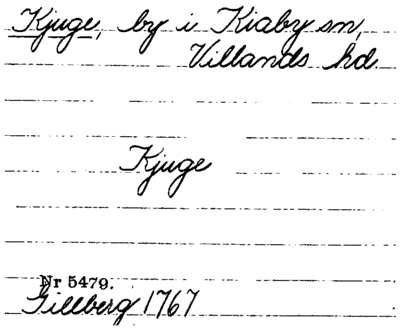 Kjuge, by i Kiaby sn,
Villands hd.
Kjuge
Nr 5479.
Gillberg 1767